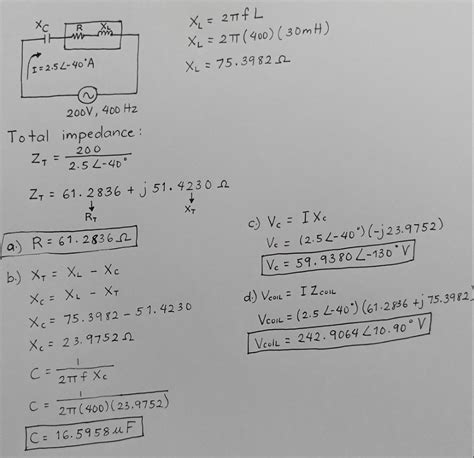 X_C R X_L
I = 2.5∠-40° A
200V, 400 Hz
X_L = 2πfL
X_L = 2π(400)(30mH)
X_L = 75.3982 Ω
Total impedance:
Z_T = 200 / 2.5∠-40°
Z_T = 61.2836 + j 51.4230 Ω
↓ ↓
R_T X_T
a.) R = 61.2836 Ω
b.) X_T = X_L - X_C
X_C = X_L - X_T
X_C = 75.3982 - 51.4230
X_C = 23.9752 Ω
C = 1 / 2πf X_C
C = 1 / 2π(400)(23.9752)
C = 16.5958 μF
c.) V_C = I X_C
V_C = (2.5∠-40°)(-j23.9752)
V_C = 59.9380∠-130° V
d.) V_COIL = I Z_COIL
V_COIL = (2.5∠-40°)(61.2836 + j75.3982)
V_COIL = 242.9064∠10.90° V